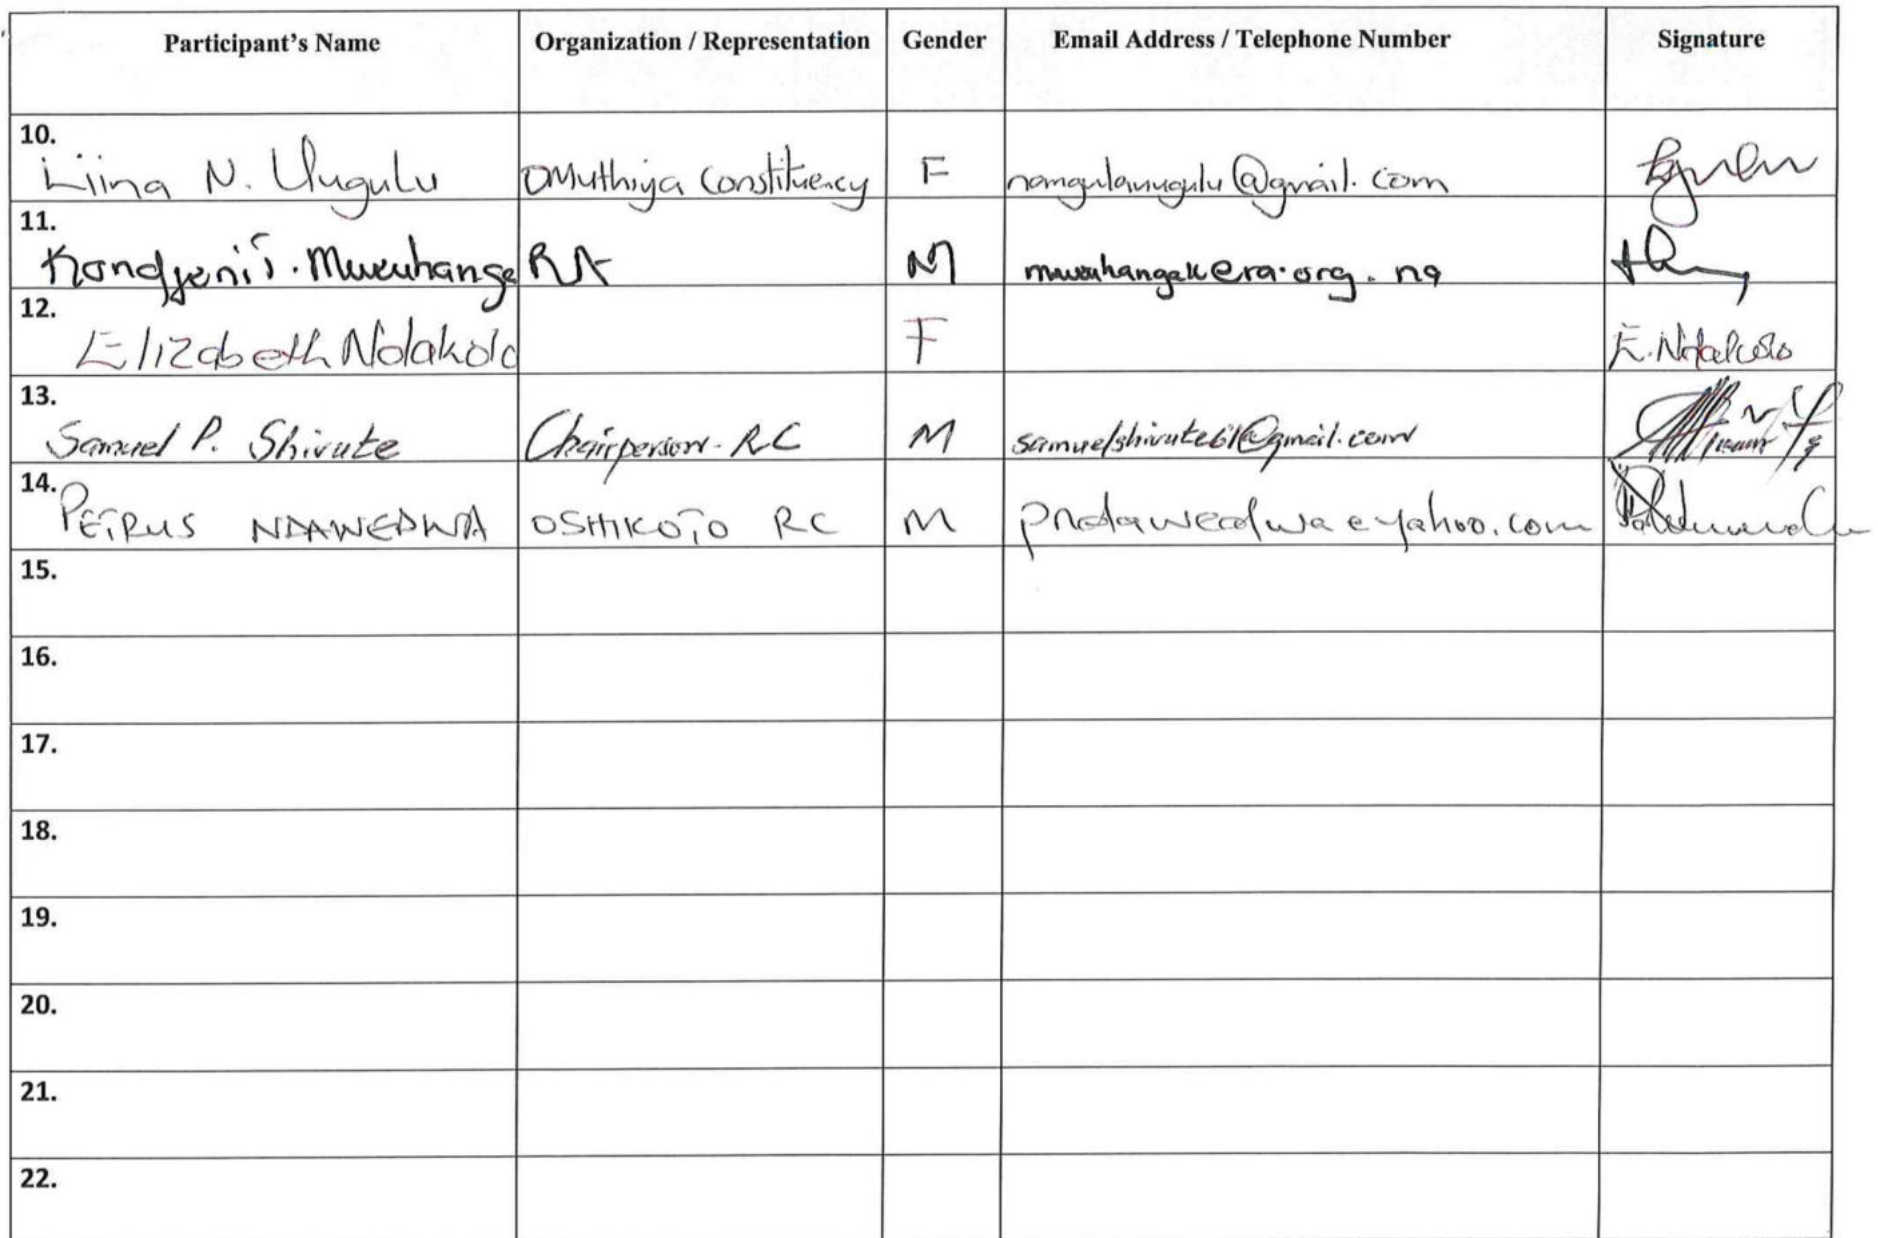 Participant's Name Organization / Representation Gender Email Address / Telephone Number Signature
10. Liina N. Uugulu Omuthiya Constituency F namgulauugulu@gmail.com
11. RA M mwuuhangak@ra.org.na
12. Elizabeth Ndakolo F E. Ndakolo
13. Samuel P. Shivute Chairperson - RC M samuelshivute61@gmail.com
14. PETRUS NDAWEDWA OSHIKOTO RC M pndawedwa@yahoo.com
15.
16.
17.
18.
19.
20.
21.
22.